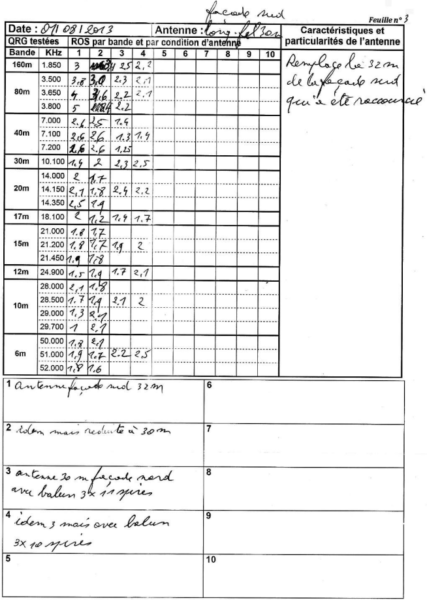 façade sud
Feuille n° 3
Date : 01/08/2013 Antenne : long-fil 30m Caractéristiques et
particularités de l'antenne
QRG testées ROS par bande et par condition d'antenne
Bande KHz 1 2 3 4 5 6 7 8 9 10
160m 1.850 3 2,5 2,2
80m 3.500 3,8 3,0 2,3 2,1
3.650 4 3,6 2,2 2,1
3.800 5 2,2
40m 7.000 2,6 2,5 1.4
7.100 2,6 2,6 1.3 1,4
7.200 2,6 2.6 1,25
30m 10.100 1,4 2 2,3 2,5
20m 14.000 2 1,7
14.150 2,1 1,8 2,4 2.2
14.350 2,5 1,9
17m 18.100 2 1,2 1,4 1.7
15m 21.000 1.8 1,7
21.200 1.8 1,7 1,9 2
21.450 1,9 1,8
12m 24.900 1,5 1,9 1.7 2,1
10m 28.000 2,1 1,8
28.500 1,7 1,9 2,1 2
29.000 1,3 2,1
29.700 1 2,1
6m 50.000 1,8 2,1
51.000 1,9 1,7 2.2 2,5
52.000 1,8 1,6
Remplace la 32 m
de la façade sud
qui a été raccourcie
1 antenne façade sud 32m
6
2 idem mais réduite à 30m
7
3 antenne 30 m façade nord
avec balun 3x11 spires
8
4 idem 3 mais avec balun
3x10 spires
9
5
10